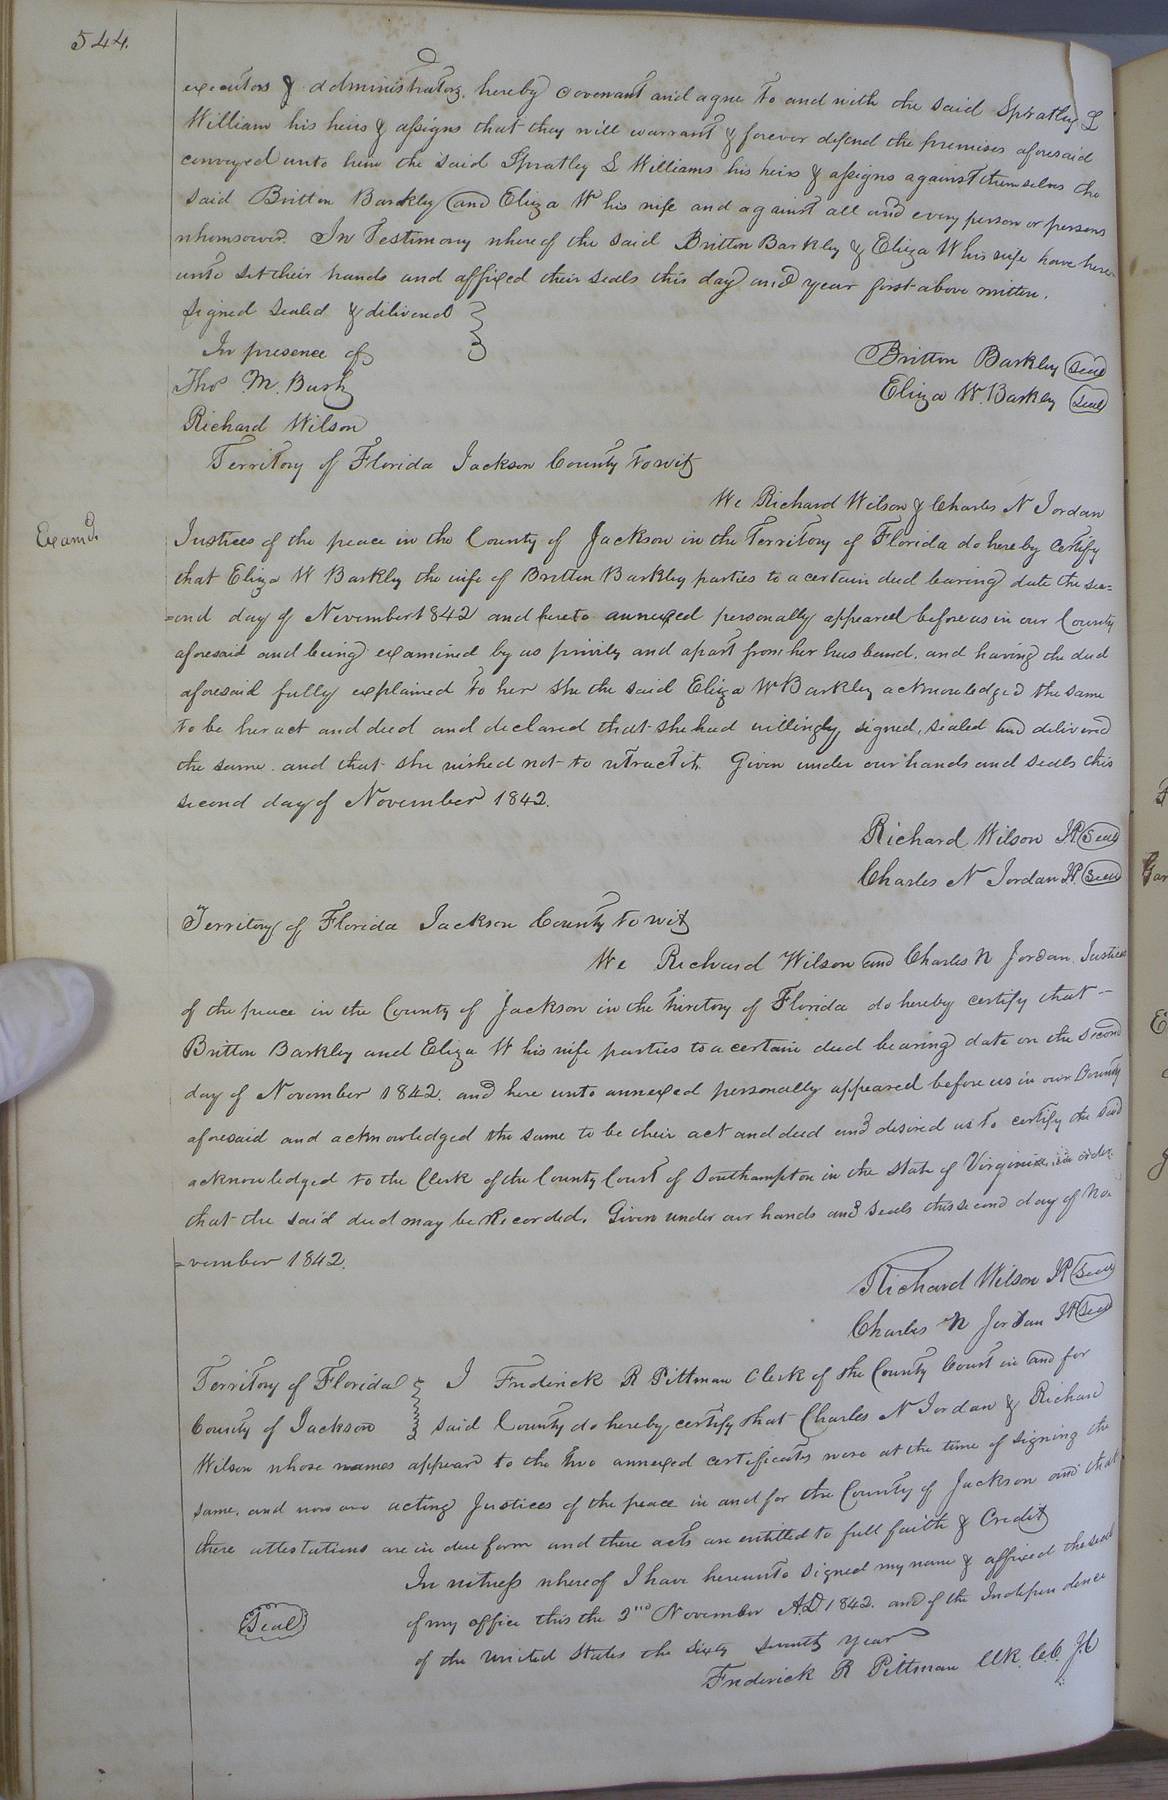 544.
executors & administrators, hereby covenant and agree to and with the said Spratley L
William his heirs & assigns that they will warrant & forever defend the premises aforesaid
conveyed unto him the said Spratley L Williams his heirs & assigns against themselves the
said Britton Barkley and Eliza W his wife and against all and every person or persons
whomsoever. In Testimony whereof the said Britton Barkley & Eliza W his wife have here=
unto set their hands and affixed their seals this day and year first above written.
Signed Sealed & delivered
In presence of
Thos M. Bush
Richard Wilson
Britton Barkley Seal
Eliza W. Barkley Seal
Territory of Florida Jackson County to wit
We Richard Wilson & Charles N Jordan
Examd.
Justices of the peace in the County of Jackson in the Territory of Florida do hereby certify
that Eliza W Barkley the wife of Britton Barkley parties to a certain deed bearing date the sec=
=ond day of November 1842 and hereto annexed personally appeared before us in our County
aforesaid and being examined by us privily and apart from her husband, and having the deed
aforesaid fully explained to her she the said Eliza W Barkley acknowledged the same
to be her act and deed and declared that she had willingly signed, sealed and delivered
the same. and that she wished not to retract it. Given under our hands and seals this
second day of November 1842.
Richard Wilson JP Seal
Charles N Jordan JP. Seal
Territory of Florida Jackson County to wit
We Richard Wilson and Charles N Jordan Justices
of the peace in the County of Jackson in the Territory of Florida do hereby certify that –
Britton Barkley and Eliza W his wife parties to a certain deed bearing date on the second
day of November 1842. and here unto annexed personally appeared before us in our County
aforesaid and acknowledged the same to be their act and deed and desired us to certify the said
acknowledged to the Clerk of the County Court of Southampton in the state of Virginia, in order
that the said deed may be Recorded. Given under our hands and seals this second day of No=
=vember 1842.
Richard Wilson JP Seal
Charles N Jordan JP Seal
Territory of Florida I Frederick R Pittman Clerk of the County Court in and for
County of Jackson said County do hereby certify that Charles N Jordan & Richard
Wilson whose names appear to the two annexed certificates were at the time of signing the
same, and now are acting Justices of the peace in and for the County of Jackson and that
there attestations are in due form and there acts are entitled to full faith & Credit
In witness whereof I have hereunto signed my name & affixed the seal
Seal
of my office this the 2nd November AD. 1842. and of the Independence
of the United States the sixty seventh year
Frederick R Pittman Clk. C.C. J.C